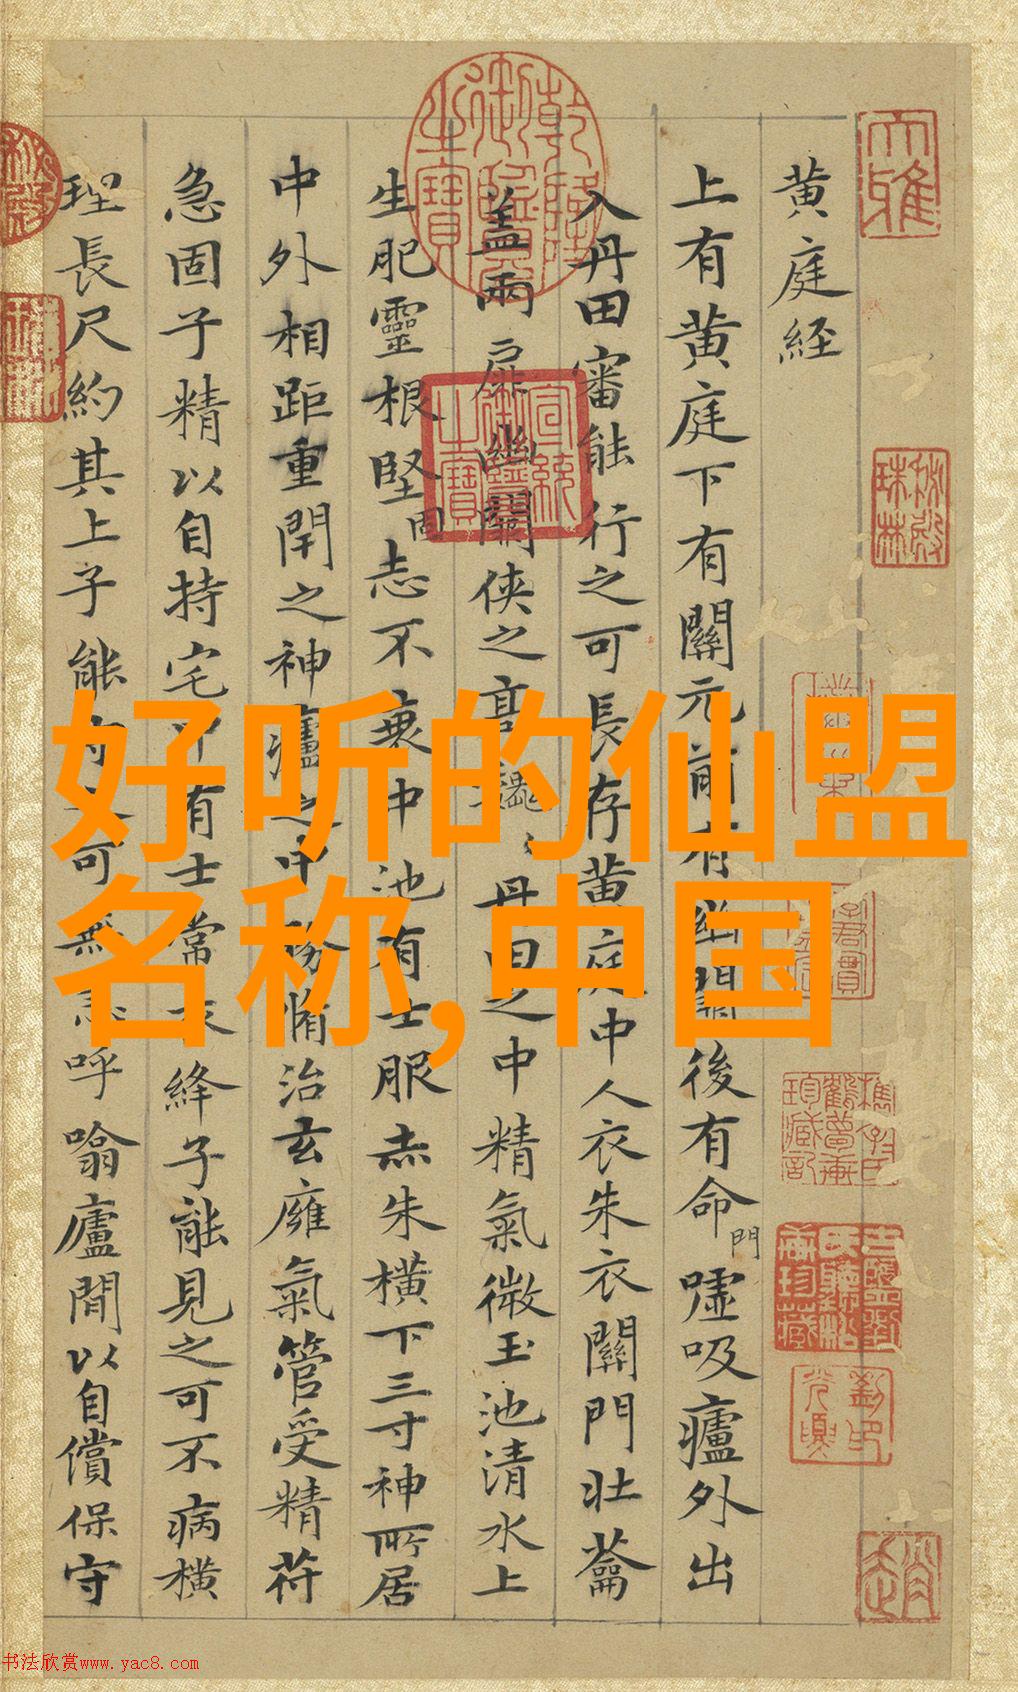 黄庭经
上有黄庭下有關元前有幽關後有命門嘘吸廬外出
入丹田審能行之可長存黄庭中人衣朱衣關門壯蘥
蓋兩扉幽關侠之高巍巍丹田之中精氣微玉池清水上
生肥靈根堅固志不衰中池有士服赤朱横下三寸神所居
中外相距重閇之神廬之中務脩治玄癰氣管受精苻
急固子精以自持宅中有士常衣絳子能見之可不病横
理長尺約其上子能守之可無恙呼噏廬間以自償保守
好听的仙盟
名称,中国
书法欣赏www.yac8.com